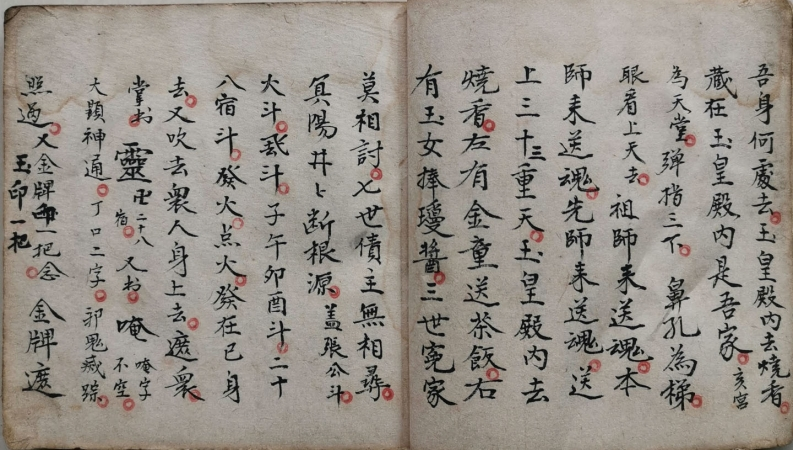 吾身何處去玉皇殿內去燒香
藏在玉皇殿內是吾家亥宮
為天堂彈指三下鼻孔為梯
眼看上天去祖師来送魂本
師来送魂先師来送魂送
上三十三重天玉皇殿內去
燒香左有金童送茶飯右
有玉女捧瓊醬三世冤家
莫相討七世債主無相尋
冥陽井卜断根源蓋張公斗
火斗我斗子午卯酉斗二十
八宿斗發火点火發在己身
去又吹去衆人身上去遮衆
掌书靈卍二十八宿又书唵唵字不空
大顯神通丁口二字邪鬼藏踪
照過又金牌一把念金牌遮
玉印一把